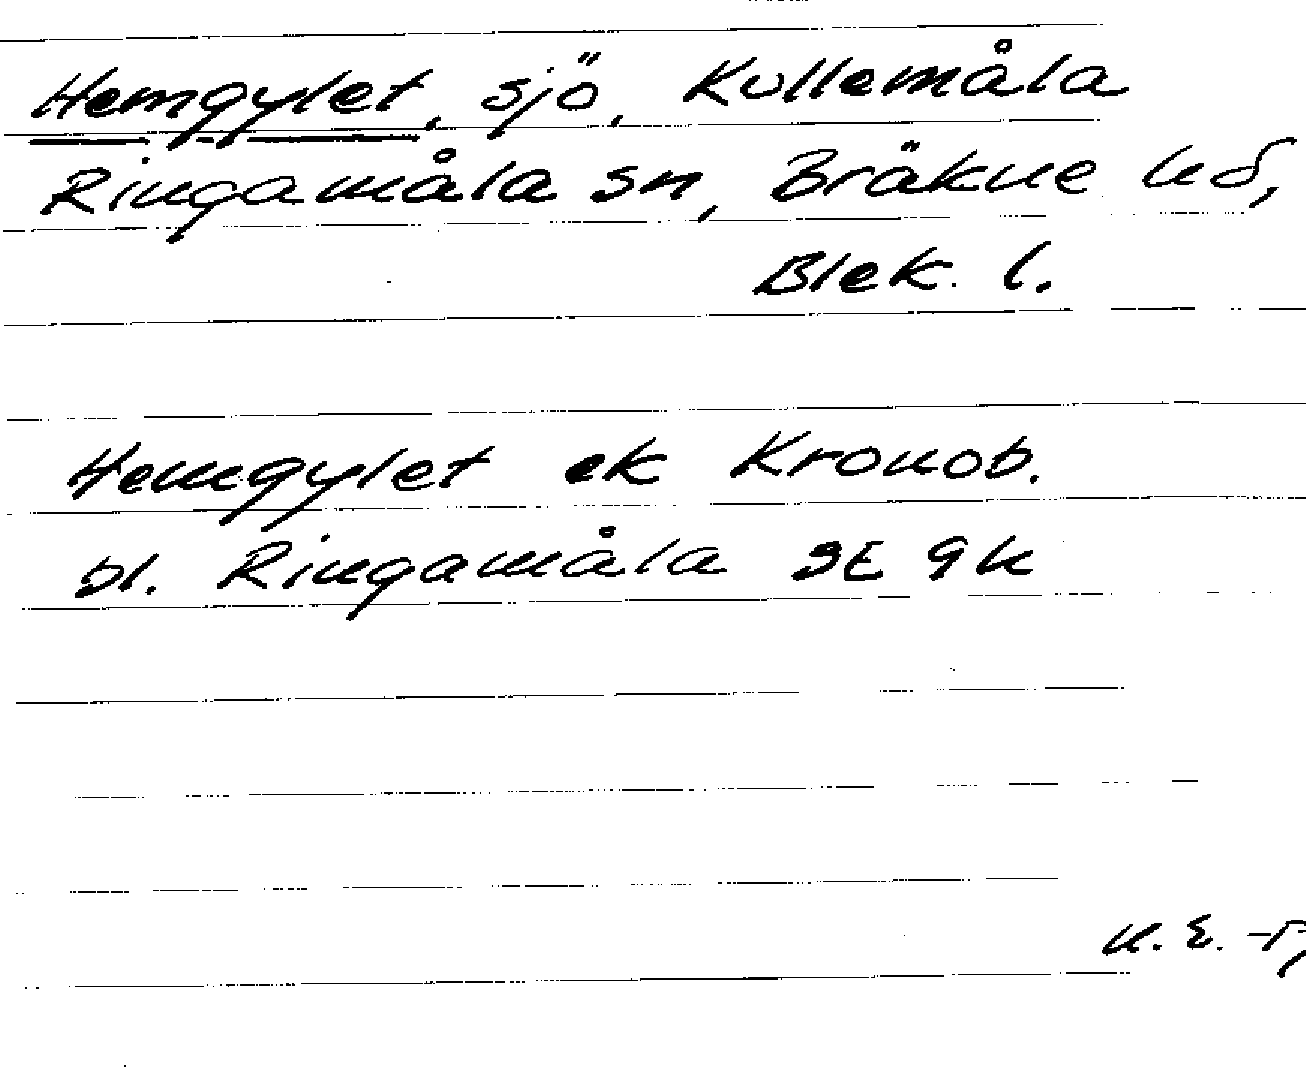 Hemgylet, sjö, Kullemåla
Ringamåla sn, Bräkne hd,
Blek. l.
Hemgylet ek Kronob.
bl. Ringamåla SE 9h